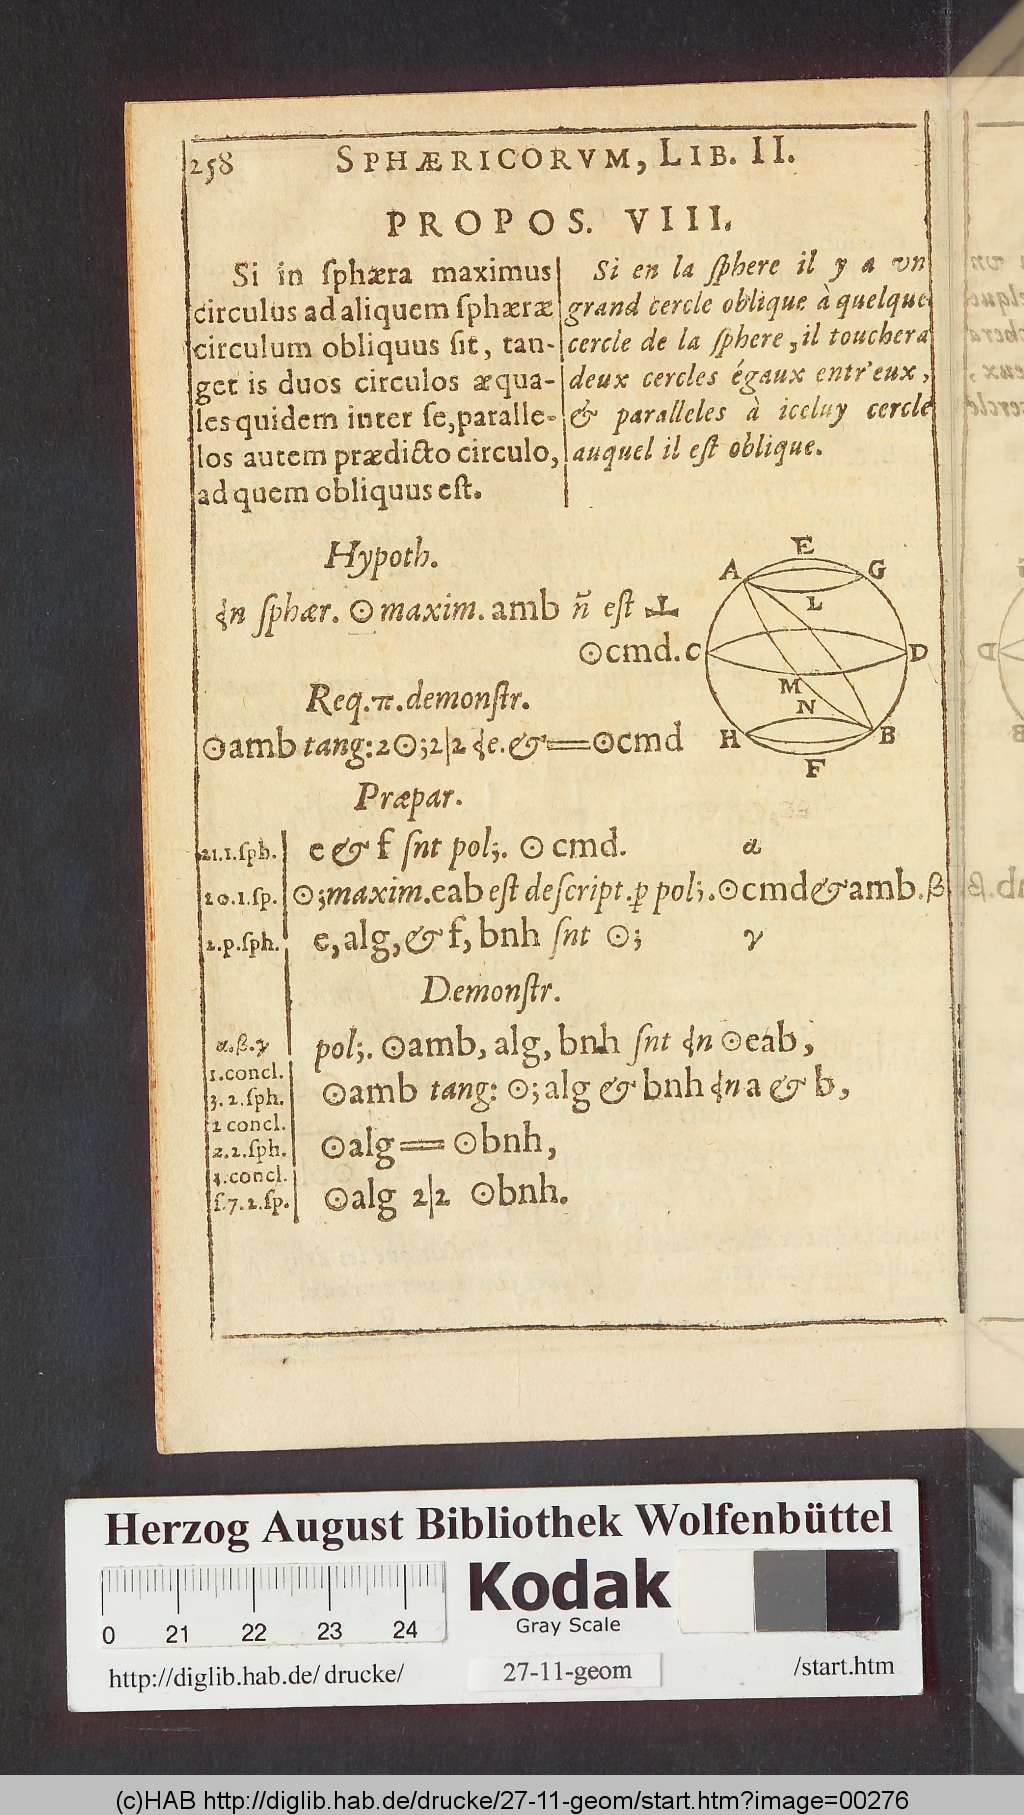 258 SPHÆRICORVM, LIB. II.
PROPOS. VIII.
Si in sphæra maximus
circulus ad aliquem sphæræ
circulum obliquus sit, tan-
get is duos circulos æqua-
les quidem inter se, paralle-
los autem prædicto circulo,
ad quem obliquus est.
Si en la sphere il y a vn
grand cercle oblique à quelque
cercle de la sphere, il touchera
deux cercles égaux entr'eux,
& paralleles à iceluy cercle
auquel il est oblique.
Hypoth.
sphær. ⊙ maxim. amb ñ est ⊥
⊙cmd.
E
A G
L
C D
M
N
H B
F
Req. π. demonstr.
⊙amb tang: 2⊙; 2|2 & = ⊙cmd
Præpar.
21.1.sph. e & f snt pol;. ⊙ cmd. α
20.1.sp. ⊙; maxim. eab est descript. p pol;. ⊙cmd & amb. β
2.p.sph. e, alg, & f, bnh snt ⊙; γ
Demonstr.
α.β.γ pol;. ⊙amb, alg, bnh snt ⊙eab,
1.concl.
3.2.sph. ⊙amb tang: ⊙; alg & bnh a & b,
2 concl.
2.2.sph. ⊙alg = ⊙bnh,
concl.
f.7.2.sp. ⊙alg 2|2 ⊙bnh.
Herzog August Bibliothek Wolfenbüttel
0 21 22 23 24
Kodak
Gray Scale
http://diglib.hab.de/drucke/ 27-11-geom /start.htm
(c)HAB http://diglib.hab.de/drucke/27-11-geom/start.htm?image=00276